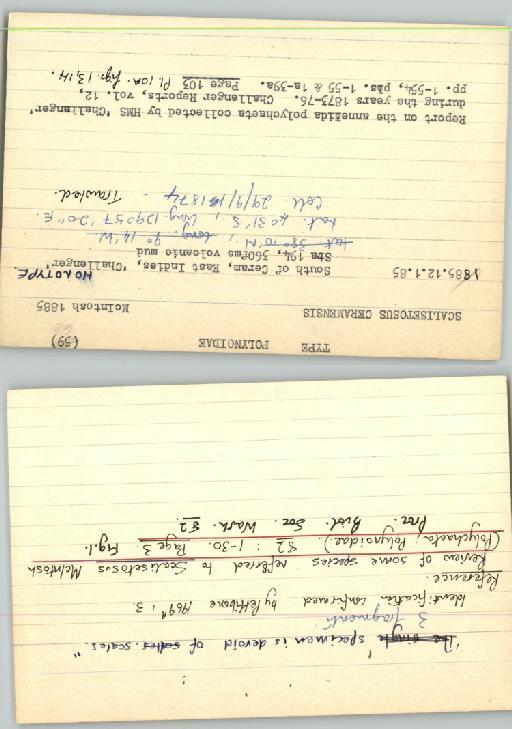 TYPE POLYNOIDAE (59)
SCALISETOSUS CERAMENSIS McIntosh 1885
1885.12.1.85 South of Ceram, East, Indies, 'Challenger' HOLOTYPE
Stn 194, 360fms volcanic mud
Lat 38°10'N, Long. 9° 14'W.
Lat. 4° 31'S, Long. 129°57'20"E.
Coll. 29/9/1874. Trawled.
Report on the annelida polychaeta collected by HMS 'Challenger'
during the years 1873-76. Challenger Reports, vol. 12,
pp. 1-554, pls. 1-55 & 1a-39a. Page 103 Pl. 10A. figs. 13,14.
"specimen is devoid of scales. scales."
3 fragments.
Identification confirmed by Pettibone 1969": 3
Reference.
Review of some species referred to Scalisetosus McIntosh
(Polychaeta, Polynoidae). 82 : 1-30. Page 3 Fig. 1.
Proc. Biol. Soc. Wash. 82